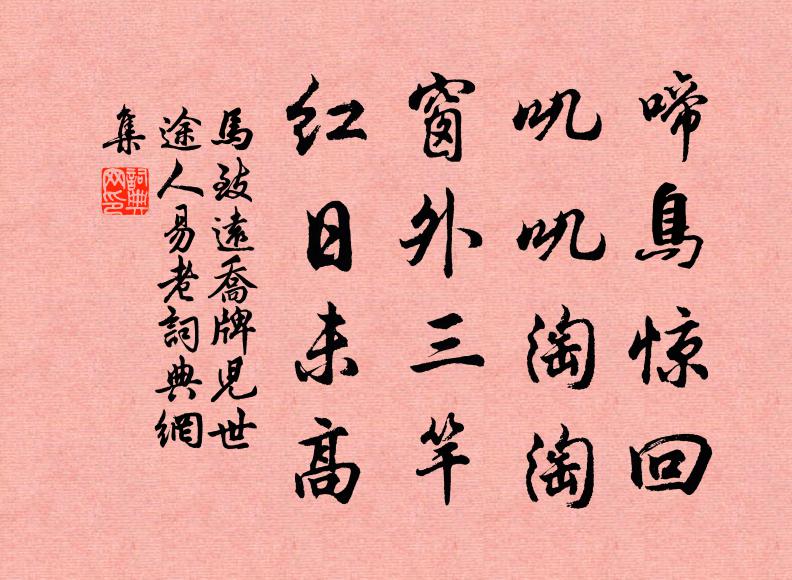 啼鳥惊回
叽叽淘淘
窗外三竿
红日未高
馬致遠喬牌兒世
途人易老詞典網
集
詞典
网印